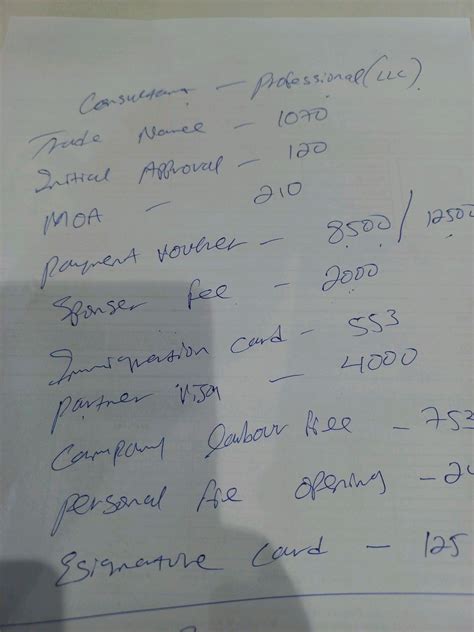 Consultancy - Professional (LLC)
Trade Name - 1070
Initial Approval - 120
MOA - 210
Payment voucher - 8500 / 12500
Sponser fee - 2000
Immigration card - 553
Partner visa - 4000
Company labour free - 753
Personal fie opening - 2
Esignature card - 125